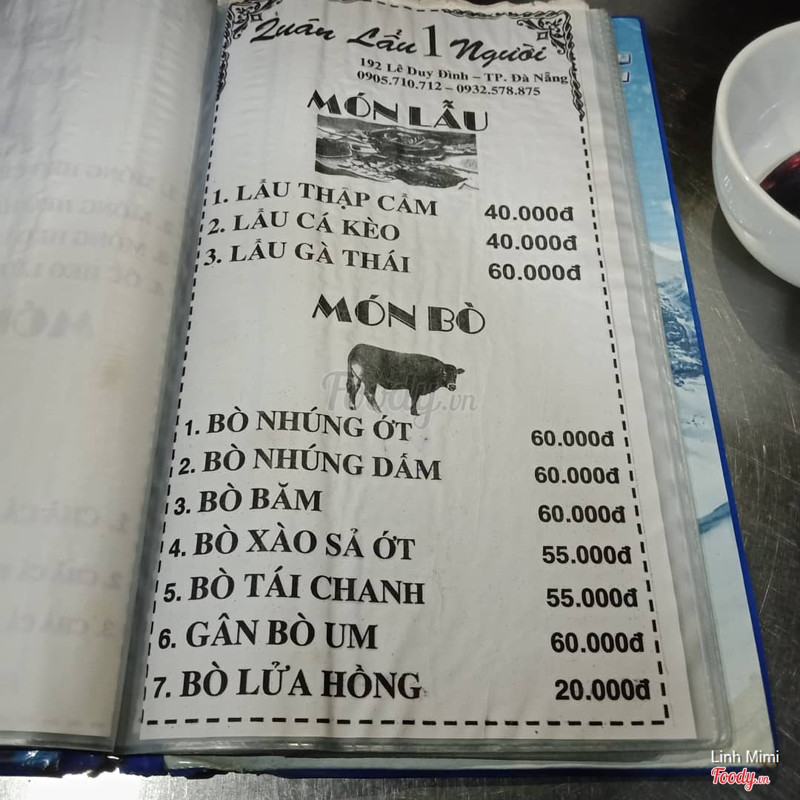 Quán Lẩu 1 Người
192 Lê Duy Đình – TP. Đà Nẵng
0905.710.712 – 0932.578.875
MÓN LẪU
1. LẨU THẬP CẨM 40.000đ
2. LẨU CÁ KÈO 40.000đ
3. LẨU GÀ THÁI 60.000đ
MÓN BÒ
Foody.vn
1. BÒ NHÚNG ỚT 60.000đ
2. BÒ NHÚNG DẤM 60.000đ
3. BÒ BĂM 60.000đ
4. BÒ XÀO SẢ ỚT 55.000đ
5. BÒ TÁI CHANH 55.000đ
6. GÂN BÒ UM 60.000đ
7. BÒ LỬA HỒNG 20.000đ
Linh Mimi
Foody.vn